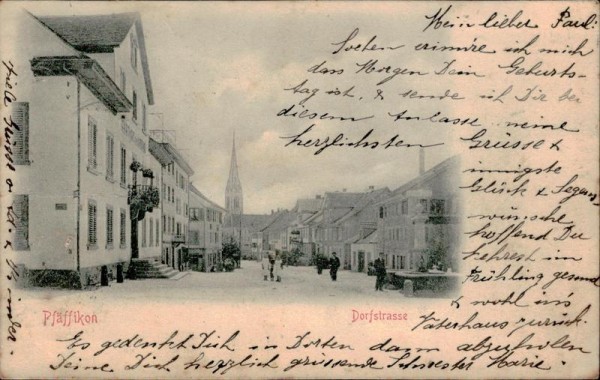 Mein lieber Paul!
Soeben erinnre ich mich
dass Morgen Dein Geburts-
tag ist, & sende ich Dir bei
diesem Anlasse meine
herzlichsten Grüsse &
innigste
Glück & Segens
wünsche
hoffend Du
kehrest im
Frühling gesund
& wohl ins
Vaterhaus zurück.
Es gedenkt Dich in Dorten dann abzuholen
Deine Dich herzlich grüssende Schwester Marie.
Viele Grüsse
Pfäffikon
Dorfstrasse